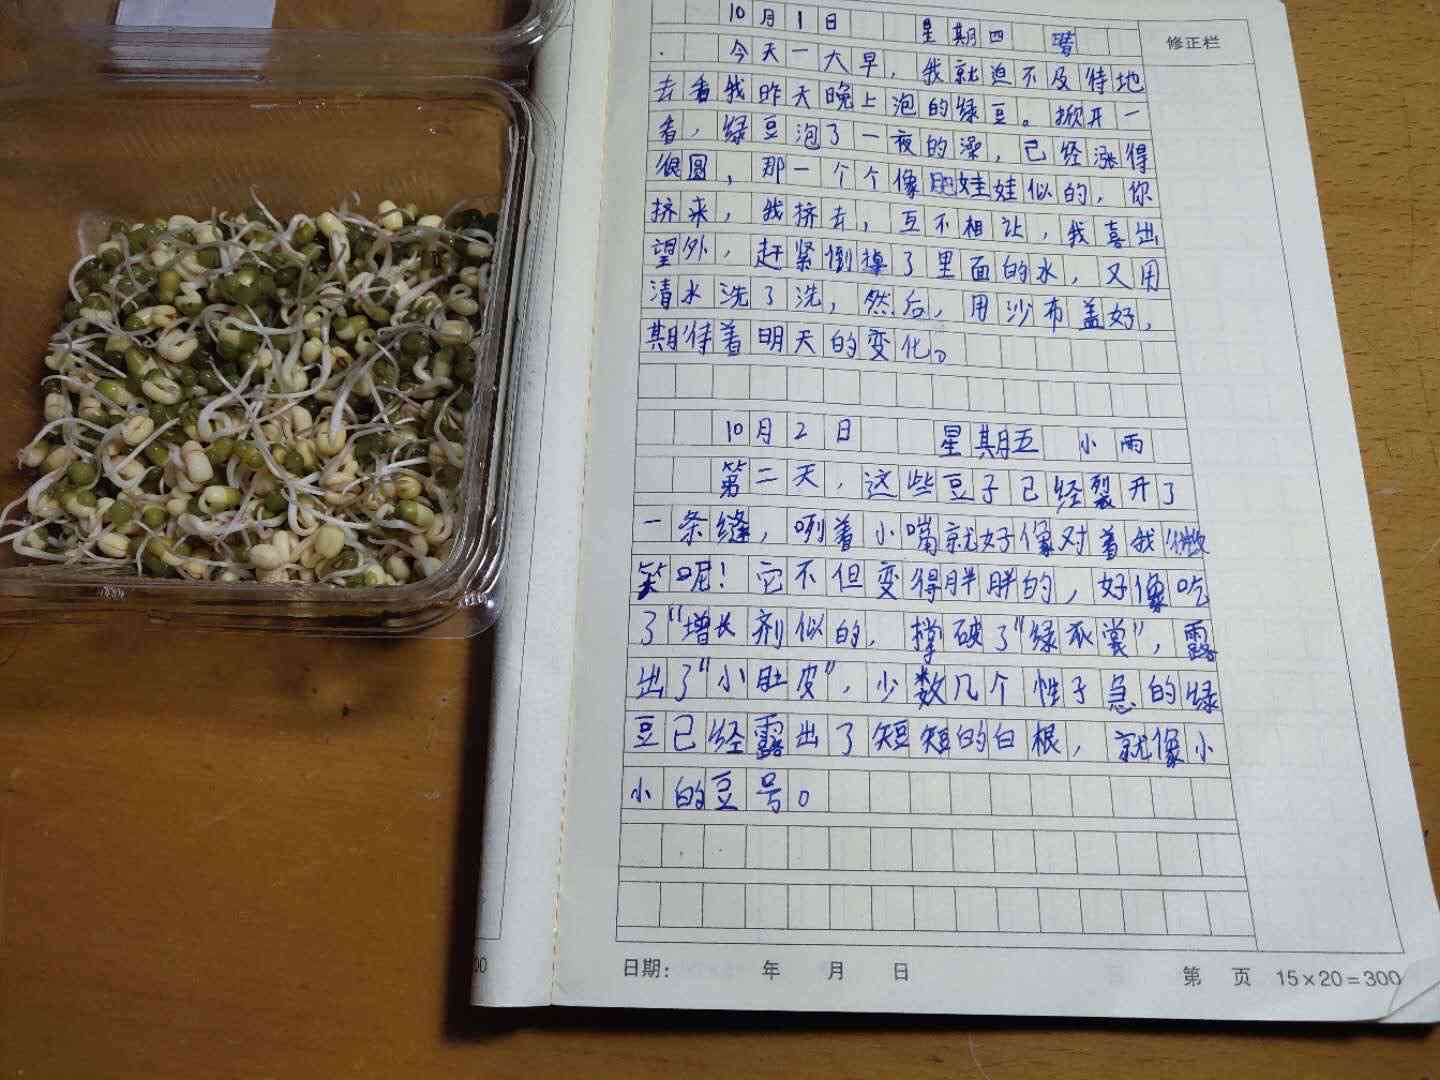 10月1日 星期四
修正栏
今天一大早，我就迫不及待地
去看我昨天晚上泡的绿豆。掀开一
看，绿豆泡了一夜的澡，已经涨得
很圆，那一个个像肥娃娃似的，你
挤来，我挤去，互不相让，我喜出
望外，赶紧倒掉了里面的水，又用
清水洗了洗，然后，用沙布盖好，
期待着明天的变化。
10月2日 星期五 小雨
第二天，这些豆子已经裂开了
一条缝，咧着小嘴就好像对着我微
笑呢！它不但变得胖胖的，好像吃
了“增长剂似的，撑破了“绿衣裳”，露
出了“小肚皮”，少数几个性子急的绿
豆已经露出了短短的白根，就像小
小的豆号。
日期： 年 月 日
第 页 15×20=300
00